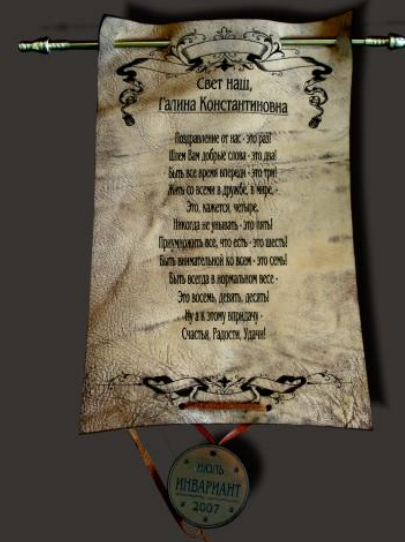 Свет наш,
Галина Константиновна
Поздравление от нас - это раз!
Шлем Вам добрые слова - это два!
Быть все время впереди - это три!
Жить со всеми в дружбе, в мире, -
Это, кажется, четыре.
Никогда не унывать - это пять!
Приумножить все, что есть - это шесть!
Быть внимательной ко всем - это семь!
Быть всегда в нормальном весе -
Это восемь, девять, десять!
Ну а к этому впридачу -
Счастья, Радости, Удачи!
ИЮЛЬ
ИНВАРИАНТ
2007